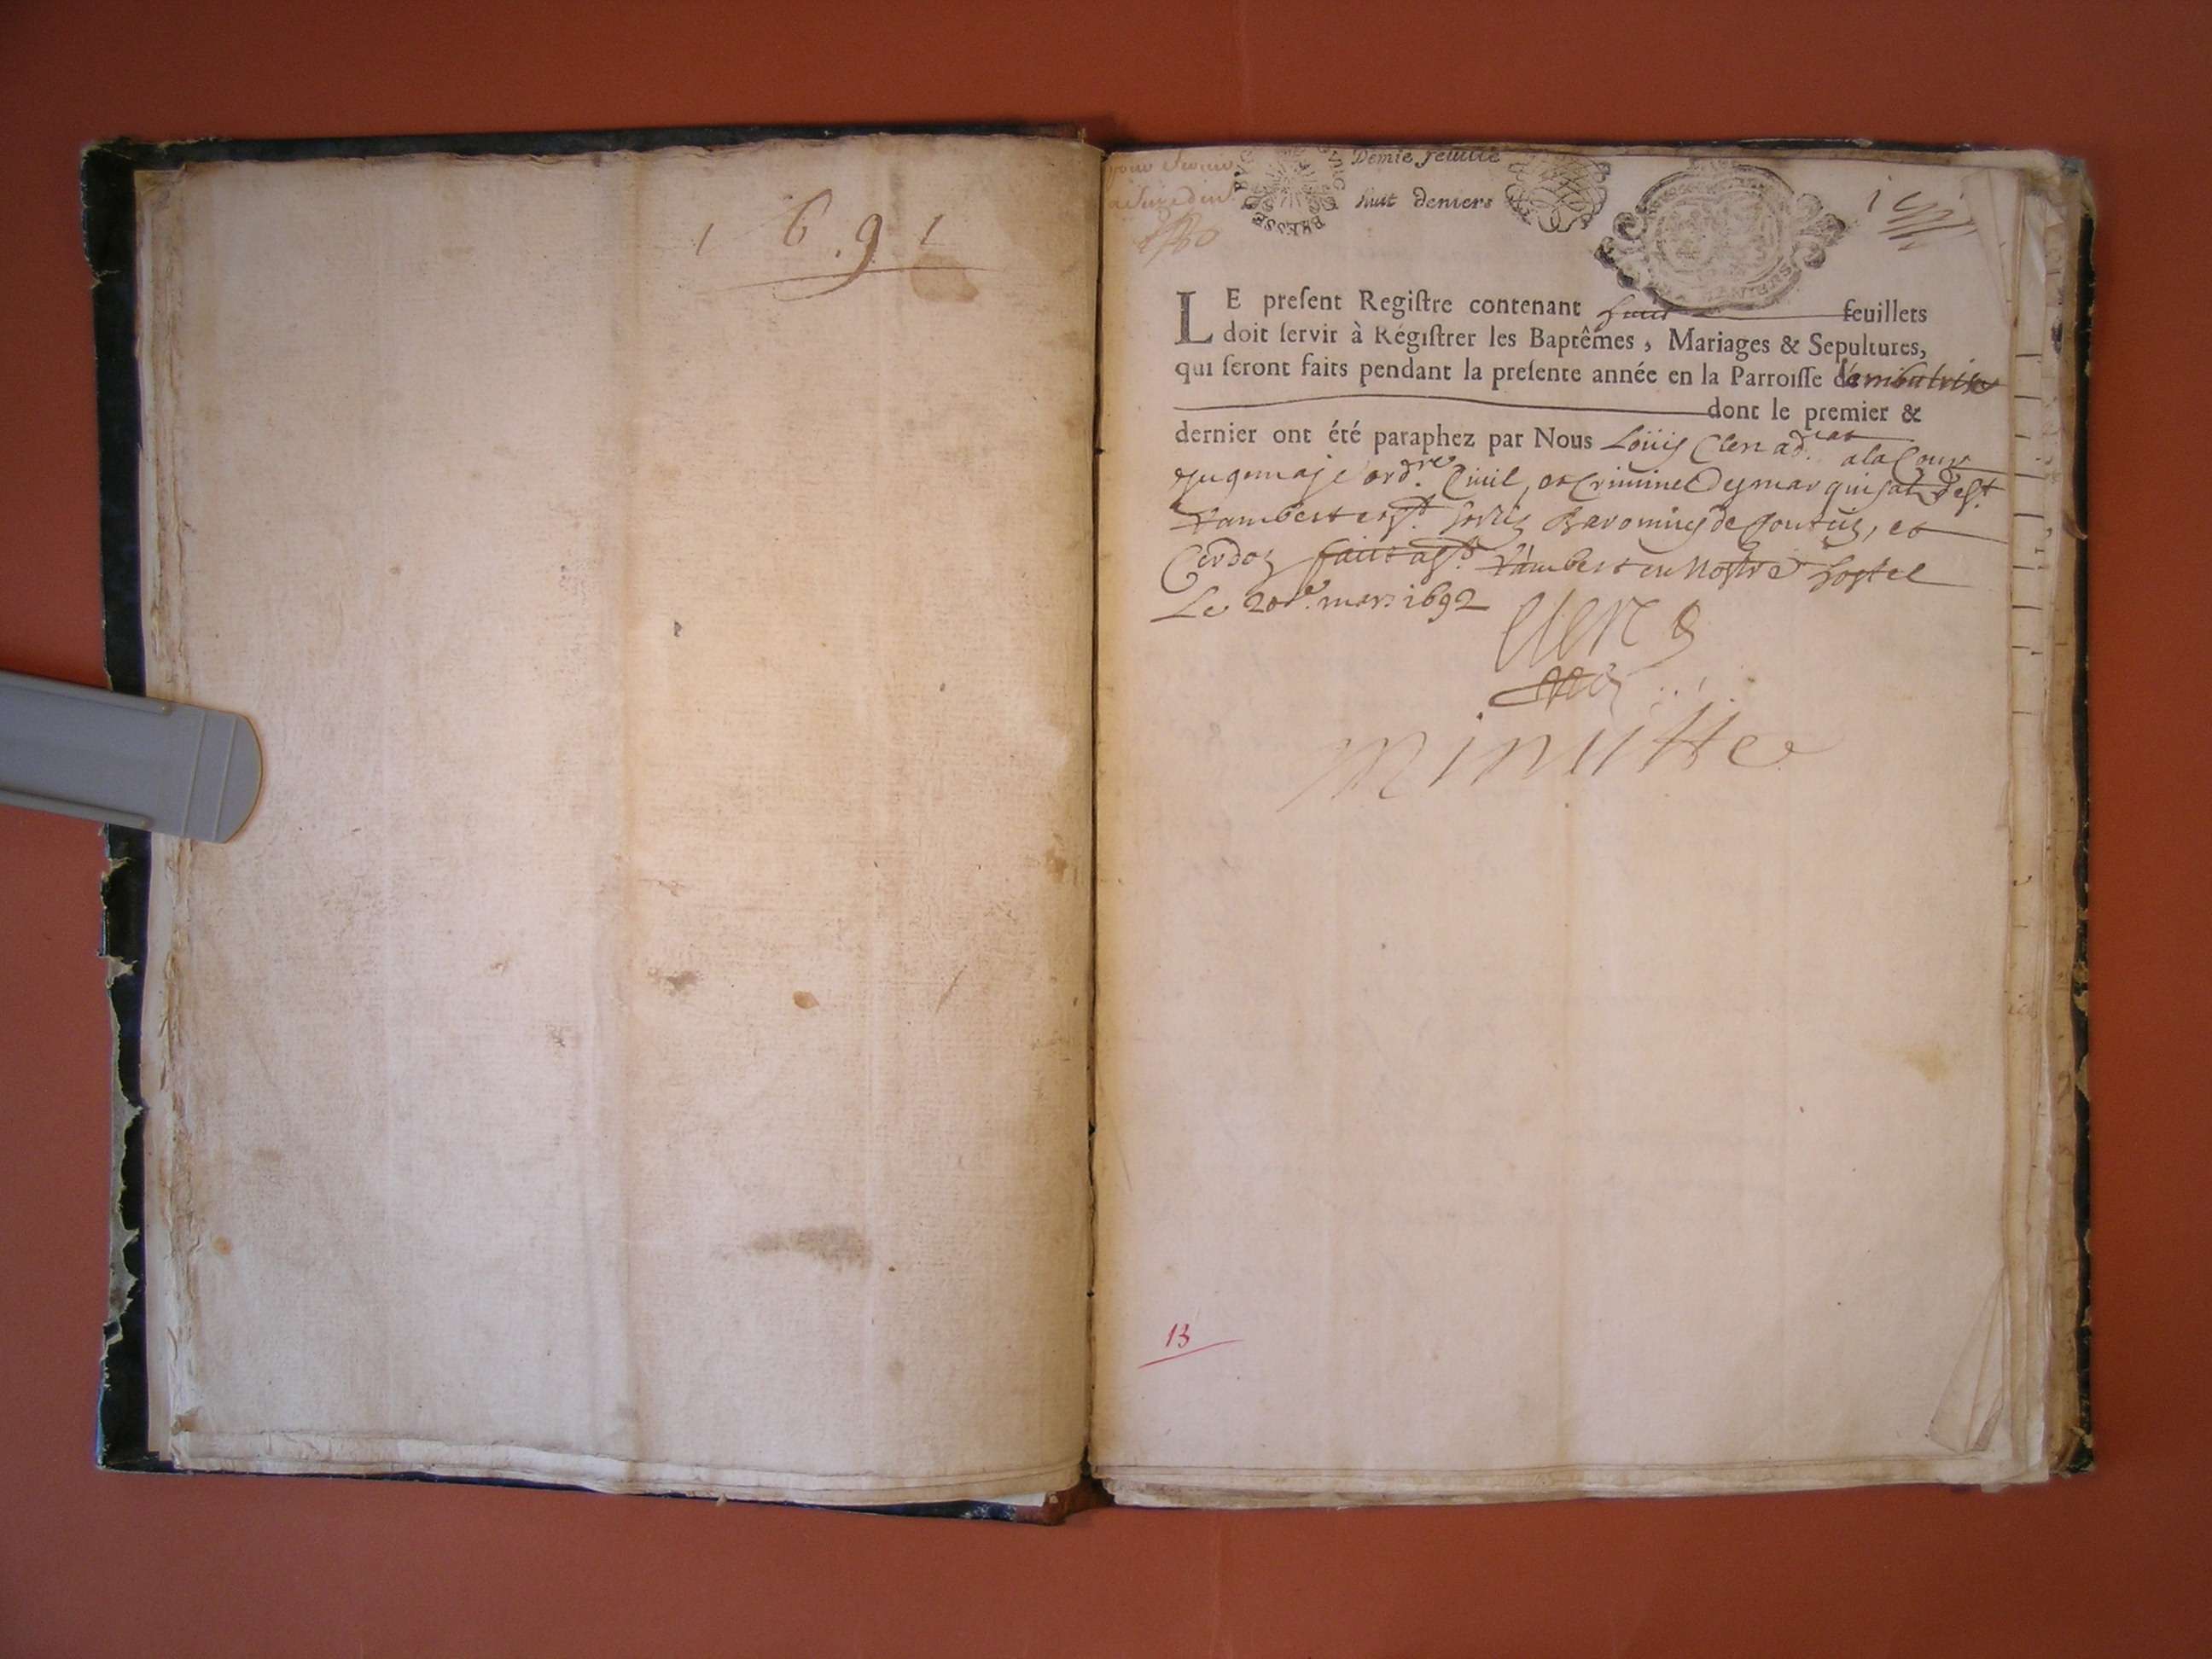 1691
Demie feuille
huit deniers
BRESSE
LE preſent Regiſtre contenant huit feuillets
doit ſervir à Régiſtrer les Baptêmes, Mariages & Sepultures,
qui ſeront faits pendant la preſente année en la Parroiſſe d'ambutrix
dont le premier &
dernier ont été paraphez par Nous Loüis Clerc ad.cat a la Cour
Juge maje ord.re Civil, et Criminel marquisat de st.
Rambert Baronnies de et
Cerdon fait a st. Rambert en Nostre hostel
Le 20e. mars 1692
Clerc
minutte
13